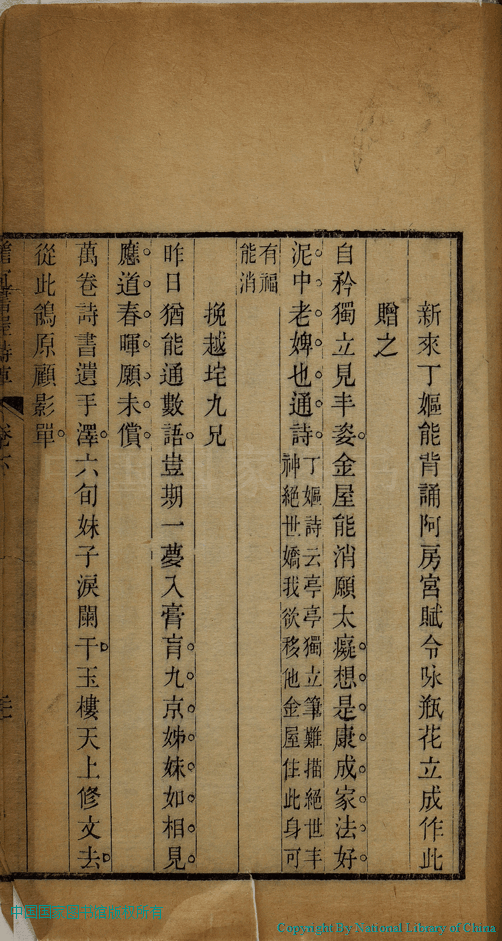 新來丁嫗能背誦阿房宮賦令咏瓶花立成作此
贈之
自矜獨立見丰姿金屋能消願太癡想是康成家法好
泥中老婢也通詩丁嫗詩云亭亭獨立筆難描絕世丰
神絕世嬌我欲移他金屋住此身可
有福
能消
挽越垞九兄
昨日猶能通數語豈期一夢入膏肓九京姊妹如相見
應道春暉願未償
萬卷詩書遺手澤六旬妹子淚闌干玉樓天上修文去
從此鴒原顧影單
卷六
Copyright by National Library of China